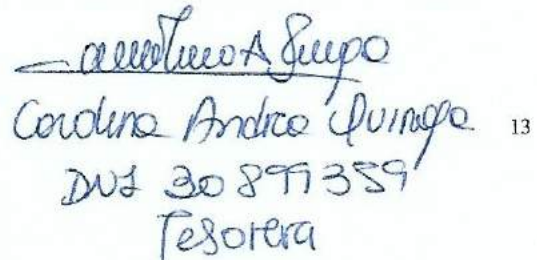 Carolina Andrea Quiroga 13
DNI 30899359
Tesorera